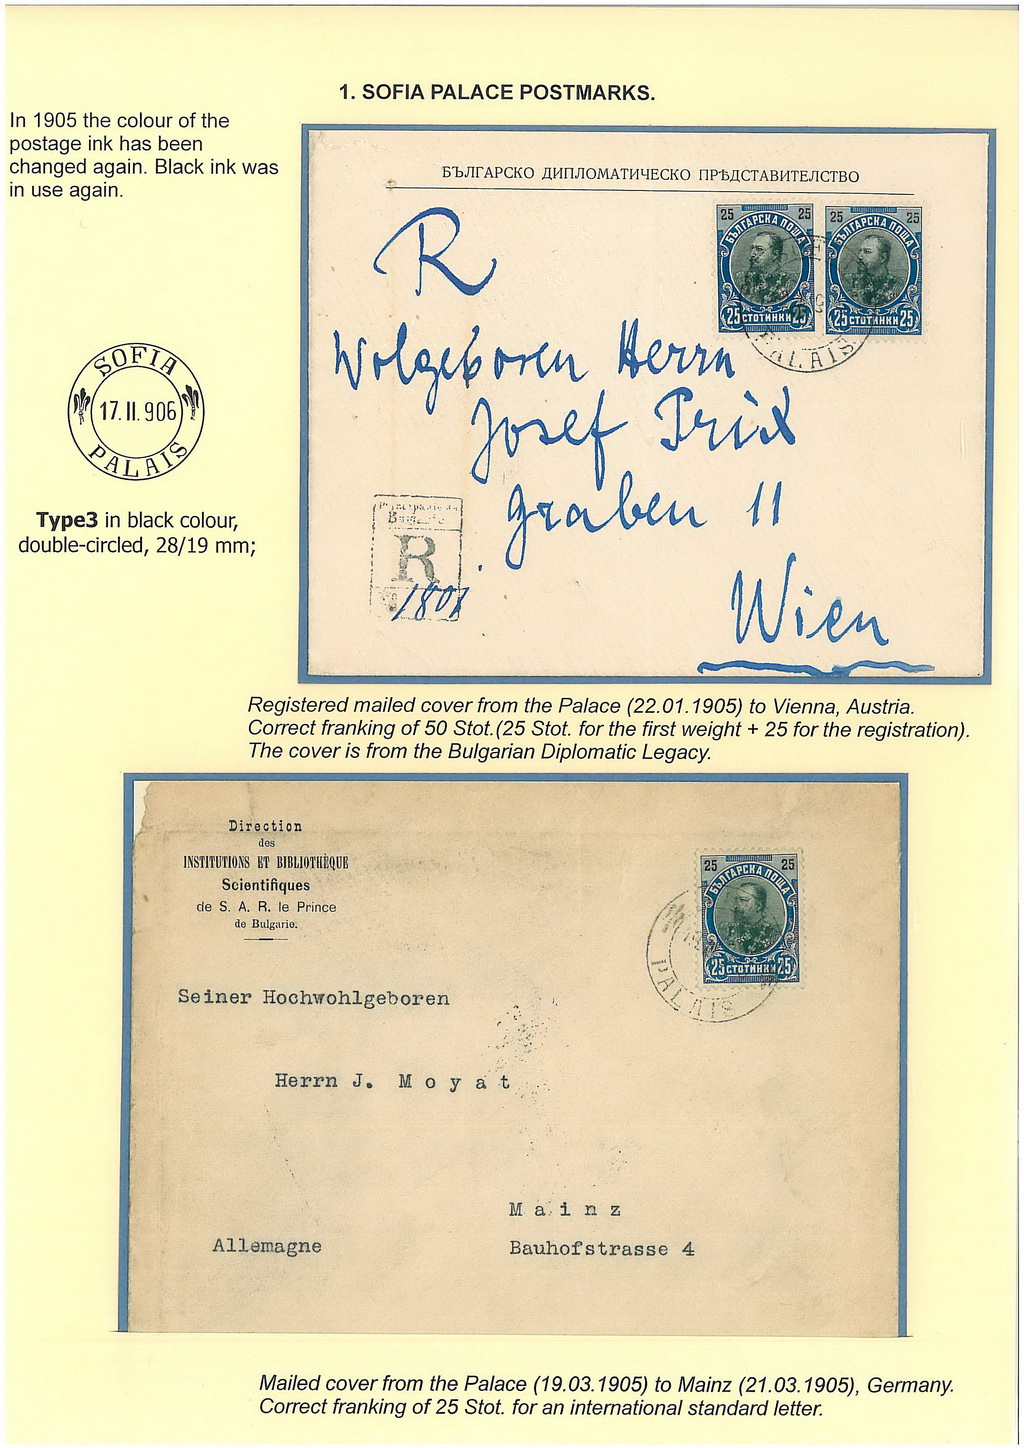 1. SOFIA PALACE POSTMARKS.
In 1905 the colour of the
postage ink has been
changed again. Black ink was
in use again.
SOFIA
17.II.906
PALAIS
Type3 in black colour,
double-circled, 28/19 mm;
БЪЛГАРСКО ДИПЛОМАТИЧЕСКО ПРѢДСТАВИТЕЛСТВО
R
25 25
БЪЛГАРСКА ПОЩА
25 СТОТИНКИ 25
25 25
БЪЛГАРСКА ПОЩА
25 СТОТИНКИ 25
PALAIS
Wolgeboren Herrn
Josef Prix
Graben 11
Wien
R
1801
Registered mailed cover from the Palace (22.01.1905) to Vienna, Austria.
Correct franking of 50 Stot.(25 Stot. for the first weight + 25 for the registration).
The cover is from the Bulgarian Diplomatic Legacy.
Direction
des
INSTITUTIONS ET BIBLIOTHÈQUE
Scientifiques
de S. A. R. le Prince
de Bulgarie.
25 25
БЪЛГАРСКА ПОЩА
25 СТОТИНКИ 25
PALAIS
Seiner Hochwohlgeboren
Herrn J. Moyat
Mainz
Allemagne
Bauhofstrasse 4
Mailed cover from the Palace (19.03.1905) to Mainz (21.03.1905), Germany.
Correct franking of 25 Stot. for an international standard letter.